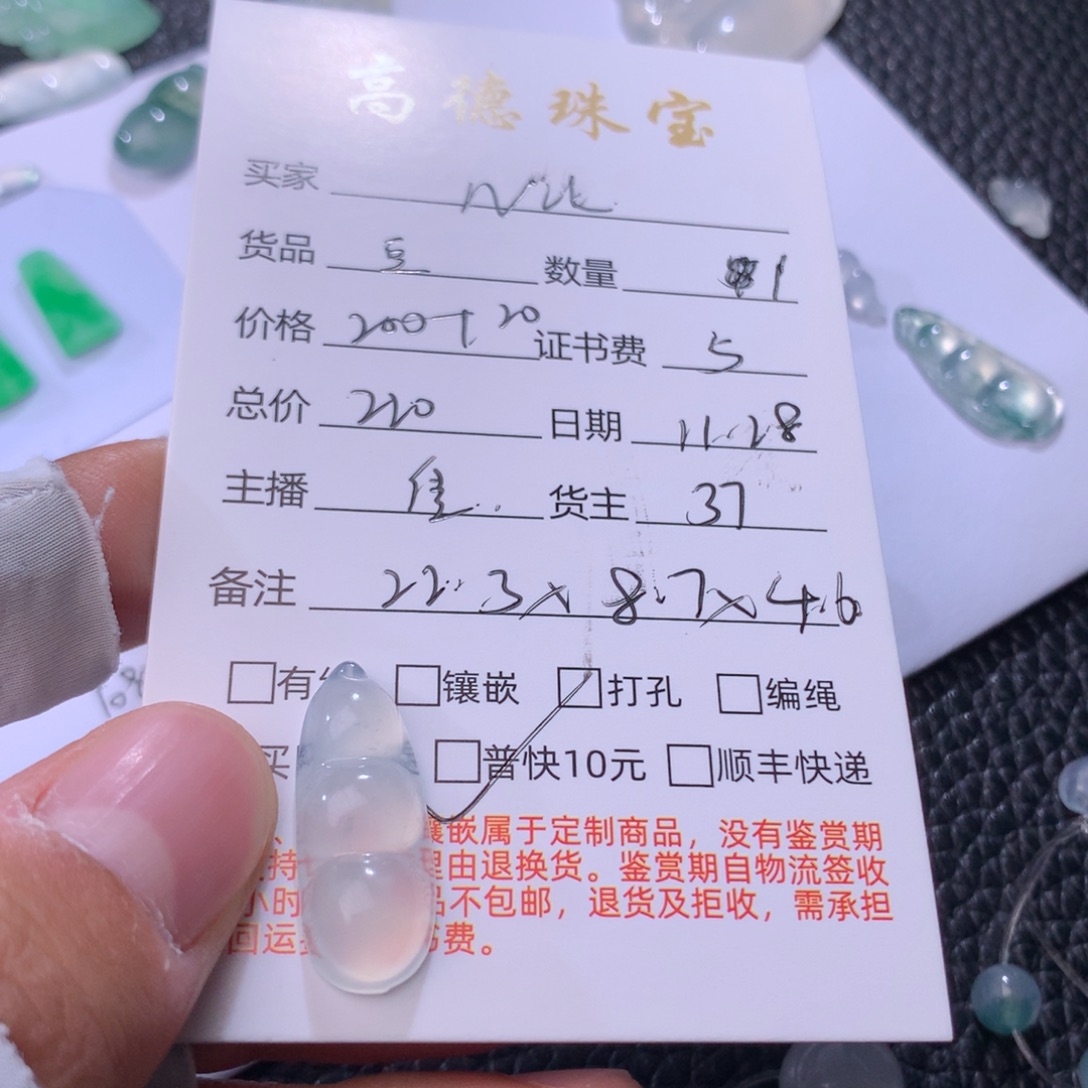 高德珠宝
买家 Nik
货品 豆 数量 1
价格 200+20 证书费 5
总价 220 日期 11.28
主播 佳. 货主 37
备注 22.3x8.7x4.6
□有 □镶嵌 □打孔 □编绳
买 □普快10元 □顺丰快递
镶嵌属于定制商品，没有鉴赏期
持 理由退换货。鉴赏期自物流签收
小时 品不包邮，退货及拒收，需承担
回运 书费。